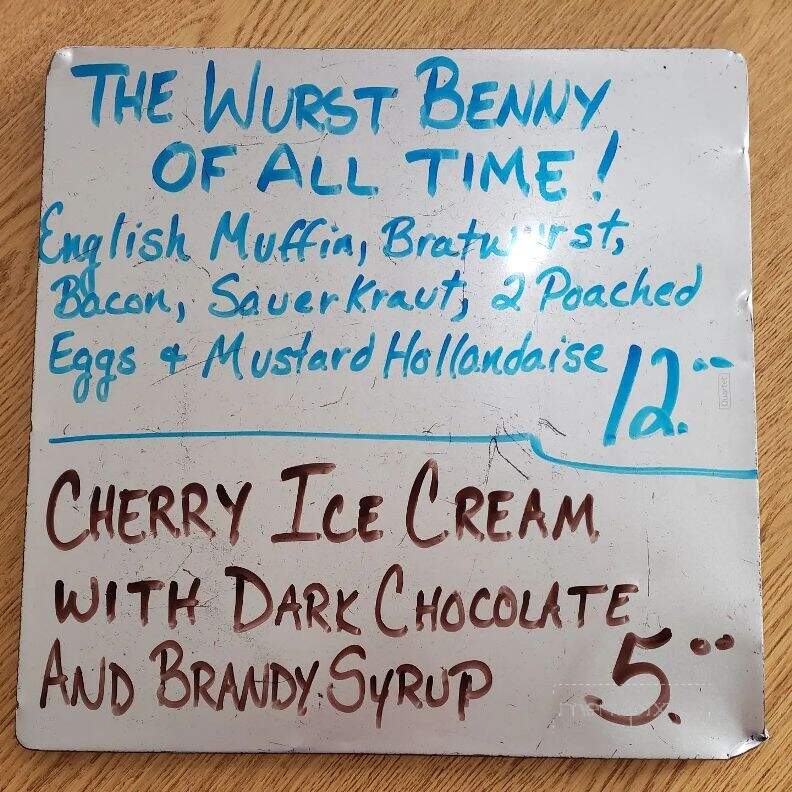 THE WURST BENNY
OF ALL TIME!
English Muffin, Bratwurst,
Bacon, Sauerkraut, 2 Poached
Eggs & Mustard Hollandaise
12.00
Quartet
CHERRY ICE CREAM
WITH DARK CHOCOLATE
AND BRANDY SYRUP
5.00